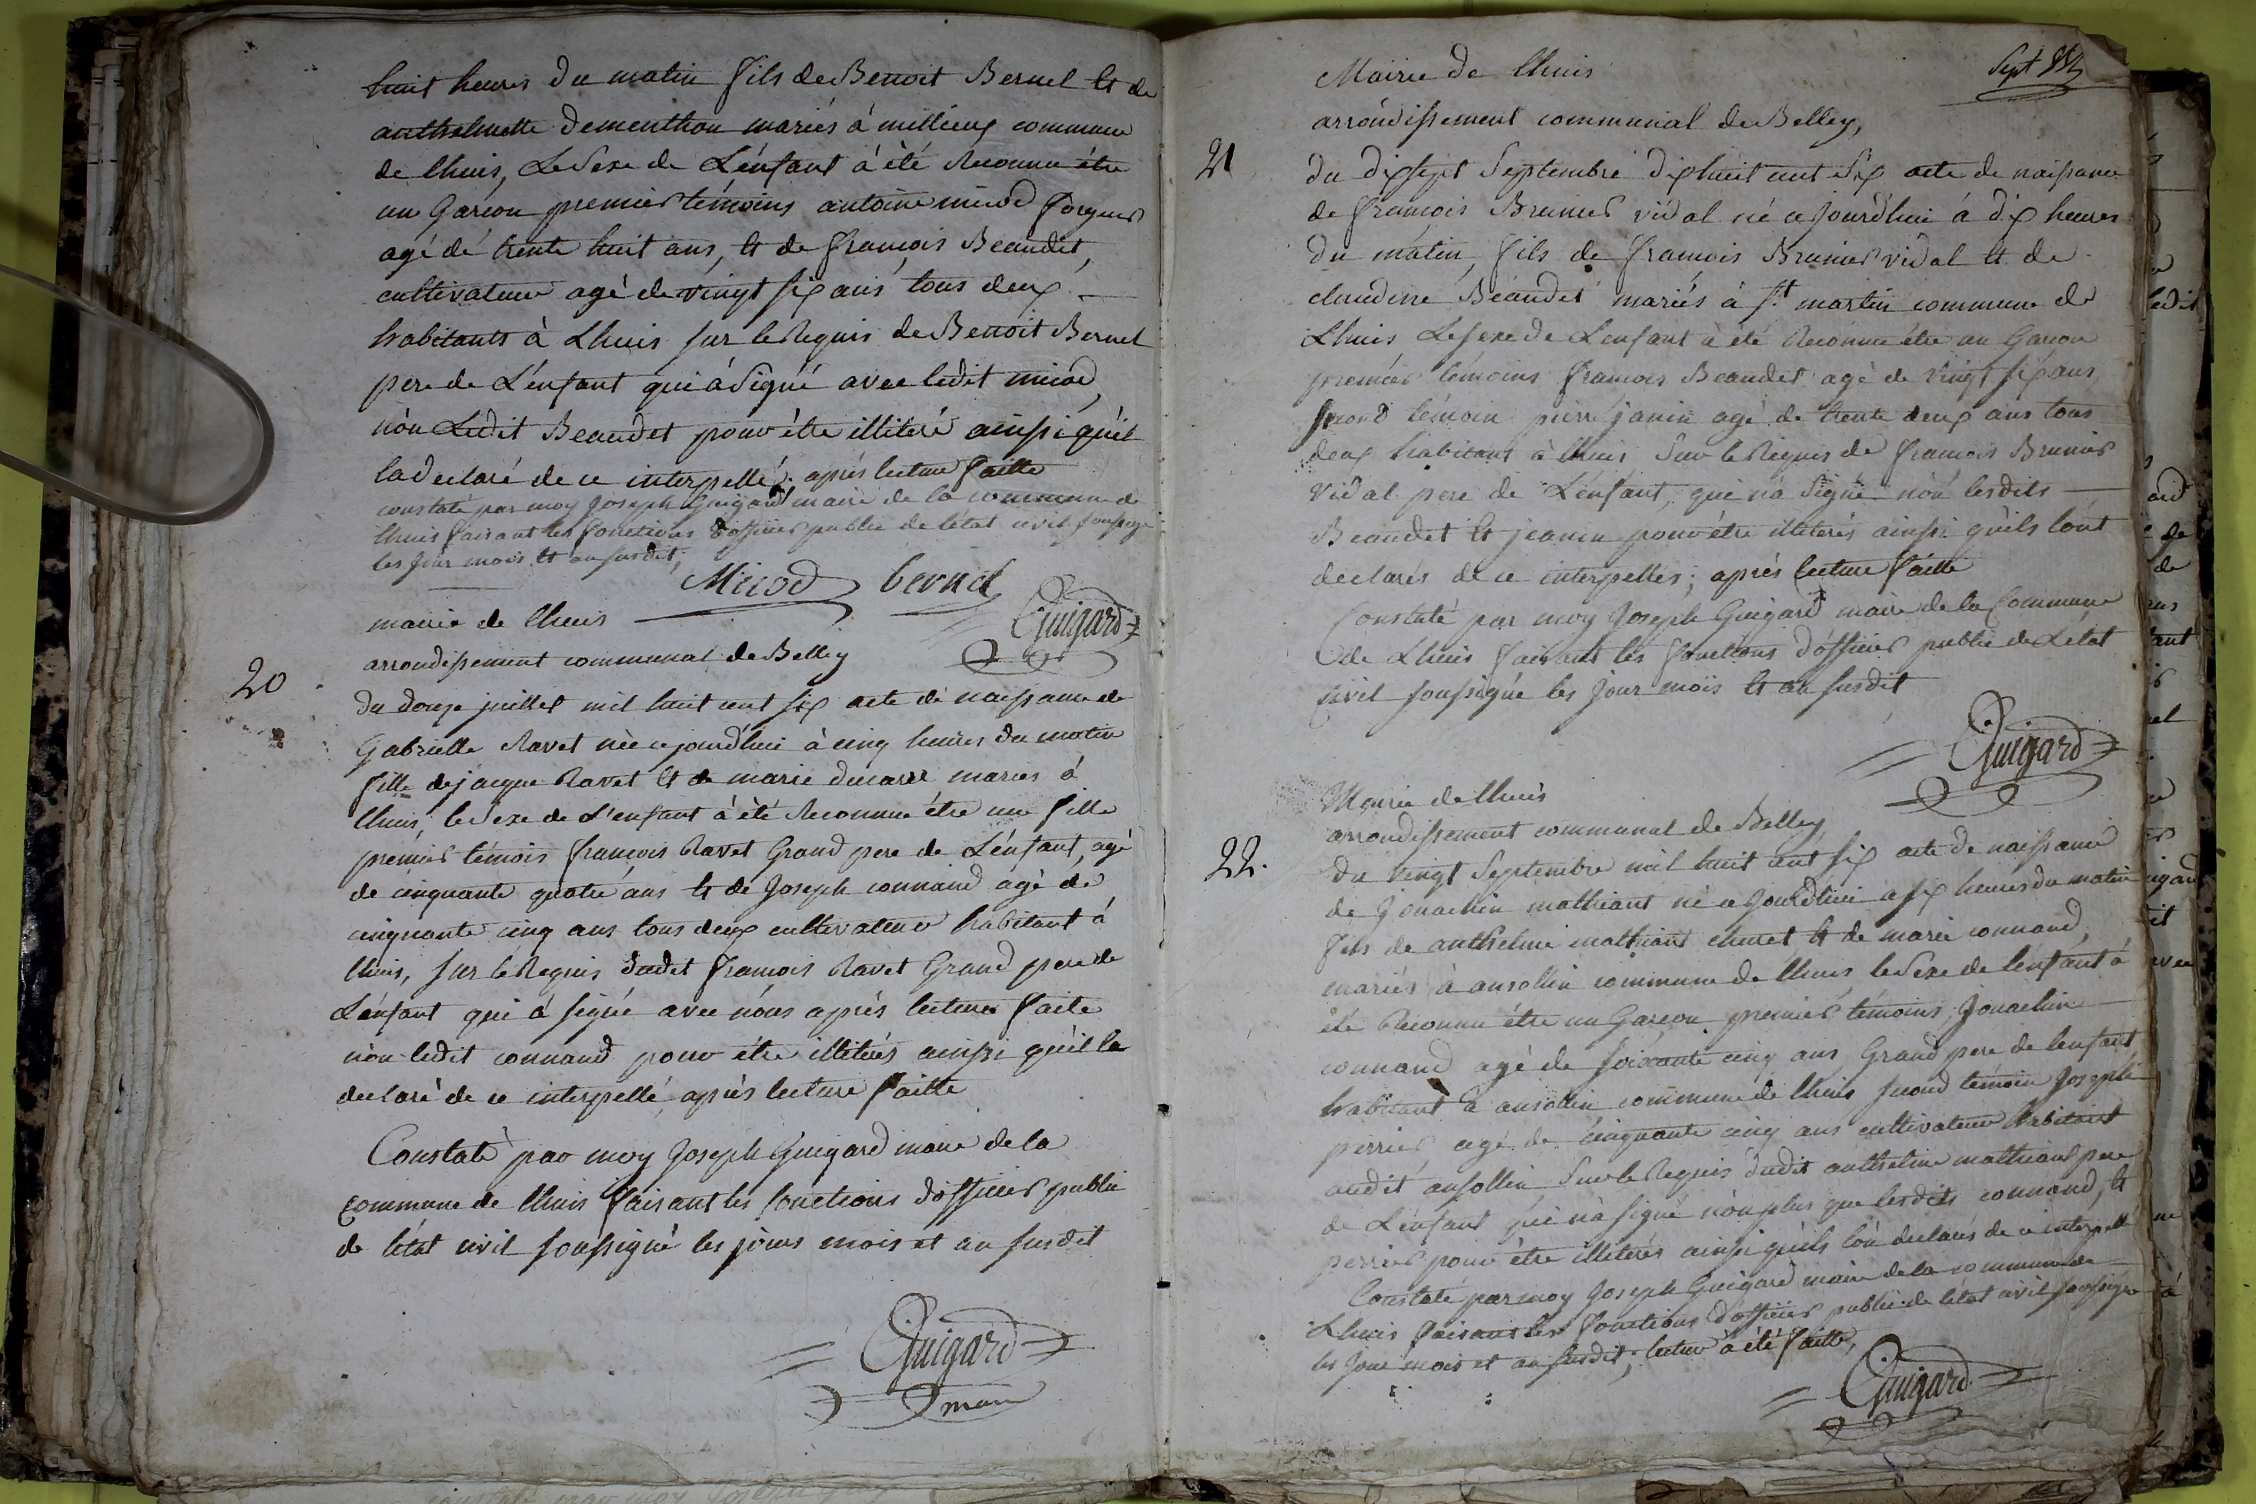 huit heures du matin fils de Benoit Bernel et de
anthelmette dementhon mariés à millieux commune
de lhuis, Le Sexe de L'enfant à été Reconnu être
un Garcon premier témoins antoine micod forgeur
agé dé trente huit ans, et de françois Beaudet,
cultivateur agé de vingt six ans tous deux
habitants à Lhuis sur le Requis de Benoit Bernel
pere de L'enfant qui à Signé avec ledit micod,
nòn Ledit Beaudet pour être illiteré ainsi qu'il
la declaré de ce interpellé, aprés lecture faitte
constaté par moy Joseph Guigard maire de la commune de
lhuis faisant les fonctions d'officier public de létat civil soussigné
les jour mois et an susdit,
Micod bernel
Guigard
mairie de lhuis
arrondissement communal de Belley
20
du douze juillet mil huit cent six acte de naissance de
Gabrielle Ravet née cejourd'hui à cinq heures du matin
fille de jacque Ravet et de marie ducarre mariés à
lhuis, le Sexe de L'enfant à été Reconnu être une fille
premier témois françois Ravet Grand pere de L'énfant, agé
de cinquante quatre ans et de Joseph connand agé de
cinquante cinq ans tous deux cultivateur habitant à
lhuis, sur le Requis dudit françois Ravet Grand pere de
L'énfant qui à signé avec nóus aprés lecture faite
nòn ledit connand pour être illiterés ainssi qu'il la
declaré de ce interpellé, aprés lecture faitte
Constaté par moy Joseph Guigard maire de la
commune de lhuis faisant les fonctions d'officier public
de létat civil soussigné les jours mois et an susdit
Guigard
maire
Mairie de lhuis
Sept
arróndissement communal de Belley,
21
du dixsept Septembre dixhuit cent Six acte de naissance
de françois Brunier vidal né cejourdhui à dix heures
du mátin, fils de françois Brunier vidal et de
claudine Beaudet mariés à St martin commune de
Lhuis Le sexe de L'enfant à été Reconnu être un Garcon
premier témoins françois Beaudet agé de vingt six ans,
second témoin pierre janin agé de trente deux ans tous
deux habitant à lhuis Sur le Requis de françois Brunier
Vidal pere de L'énfant, qui nà Signé nòn lesdits
Beaudet et jeanin pour être illiterés ainssi qu'ils lont
declarés de ce interpellés; aprés lecture faitte
Constaté par moy Joseph Guigard maire de la Commune
de Lhuis faisant les fonctions d'officier public de L'état
civil soussigné les jour mois et an susdit
Guigard
Mairie de lhuis
arrondissement communal de Belley
22.
du vingt Septembre mil huit cent six acte de naissance
de Jouachin mathiant né ce Jourdhui a six heures du matin
fils de anthelme mathiant churet et de marie connand,
mariés à ansollin commune de lhuis le Sexe de lénfant à
été Reconnu être un Garçon premier témoins Jouachin
connand agé de soixante cinq ans Grand pere de lenfant
habitant à ansollin commune de lhuis second témoin Joseph
perrier agé de cinquante cinq ans cultivateur habitant
audit ansollin Sur le Requis dudit anthelme mathiant pere
de L'enfant qui nà signé nón plus que lesdits connand, et
perrier pour être illiterés ainsi qu'ils lòn declarés de ce interpellé
Constaté par moy Joseph Guigard maire de la commune de
Lhuis faisant les fonctions d'officier public de létat civil soussigné
les jour mois et an susdit; lecture à été faitte,
Guigard